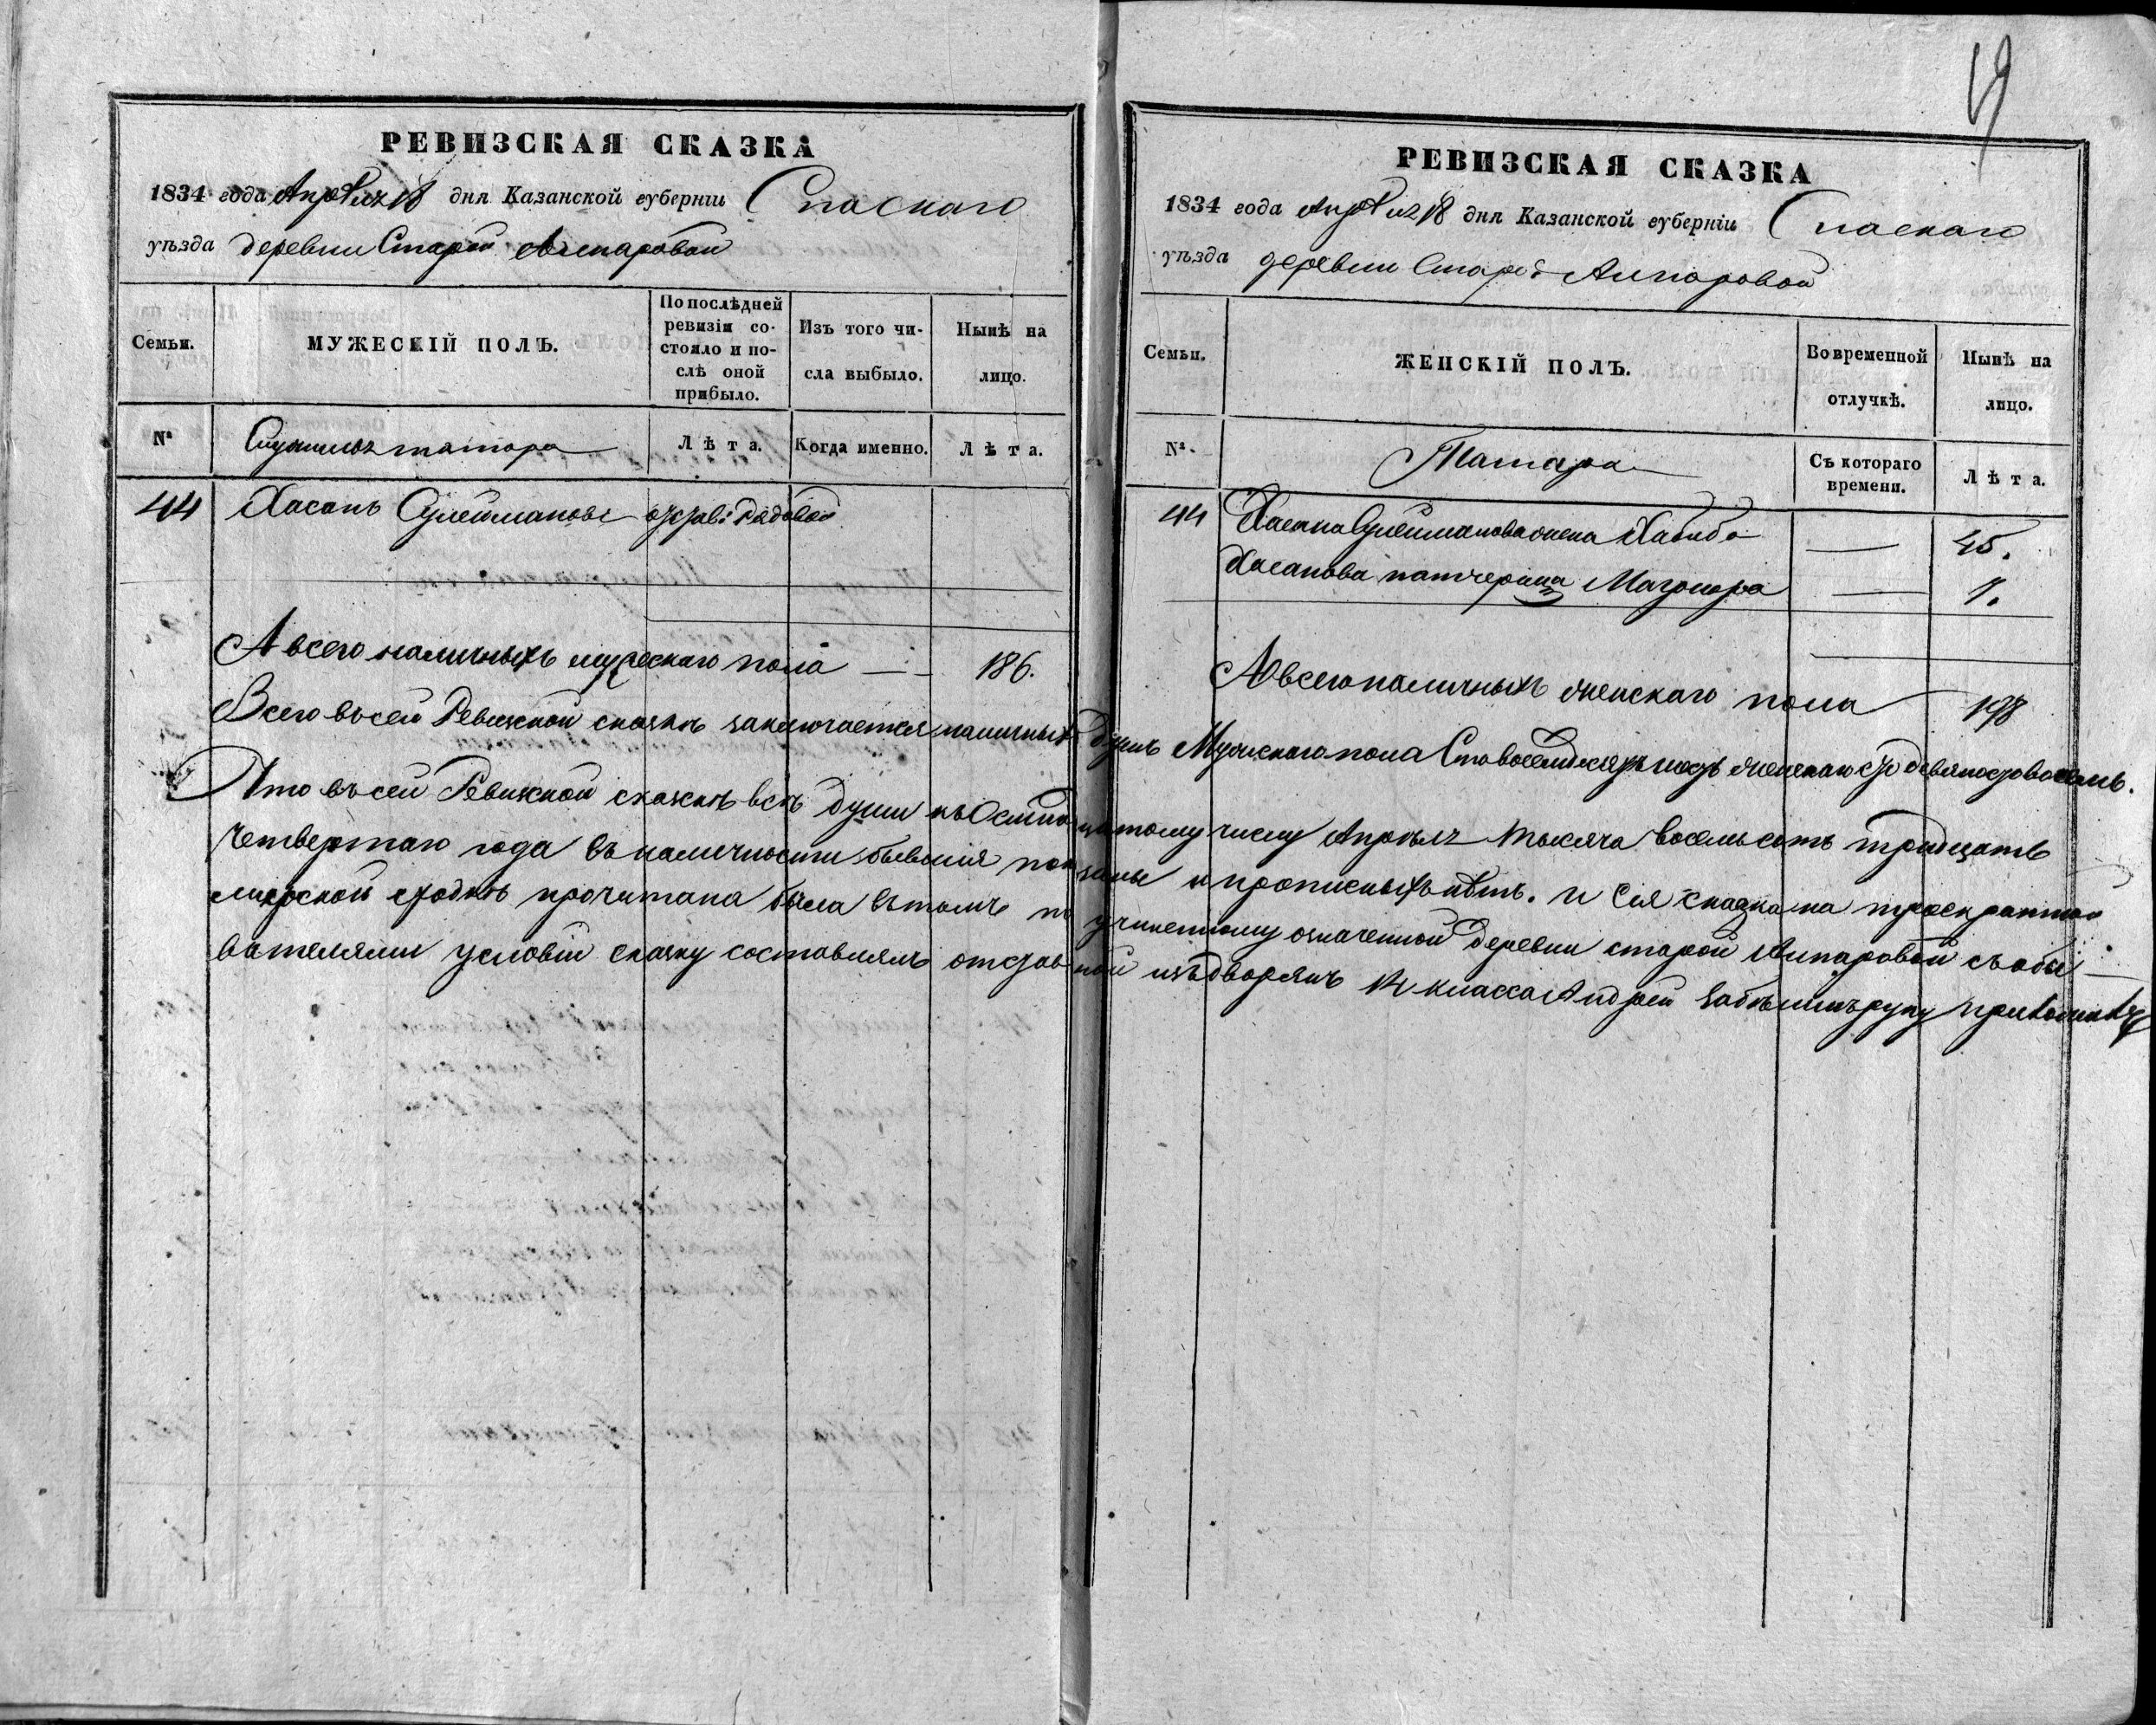 19
РЕВИЗСКАЯ СКАЗКА
1834 года Апреля 18 дня Казанской губерніи Спаскаго
уѣзда деревни Старой Алпаровой
Семьи.
МУЖЕСКІЙ ПОЛЪ.
По послѣдней ревизіи состояло и послѣ оной прибыло.
Изъ того числа выбыло.
Нынѣ на лицо.
№
татара
Лѣта.
Когда именно.
Лѣта.
44 Хасанъ Сулеймановъ отстав: Рядовой
А всего наличныхъ мужескаго пола — 186.
РЕВИЗСКАЯ СКАЗКА
1834 года Апреля 18 дня Казанской губерніи Спаскаго
уѣзда деревни Старой Алпаровой
Семьи.
ЖЕНСКІЙ ПОЛЪ.
Во временной отлучкѣ.
Нынѣ на лицо.
№.
Татара
Съ котораго времени.
Лѣта.
44 Хасана Сулейманова жена Хабиба — 45.
Хасанова патчерица — 7.
А всего наличныхъ женскаго пола 198
Всего въ сей Ревизкой сказкѣ заключается наличныхъ душъ Мужескаго пола Сто восемьдесятъ шесть женскаго сто девяносто восемь.
Что въ сей Ревизкой сказкѣ всѣ души къ Осмнадцатому числу Апрѣля тысяча восемь сотъ тридцать
четвертаго года въ наличности бывшія показаны и прописныхъ нѣтъ. и Сія сказка на троекратной
мирской сходкѣ прочитана была въ томъ по учиненному означенной деревни старой Алпаровой съ обы
вателями условію сказку составлялъ отставной изъ дворянъ 14 класса Андрей руку приложилъ